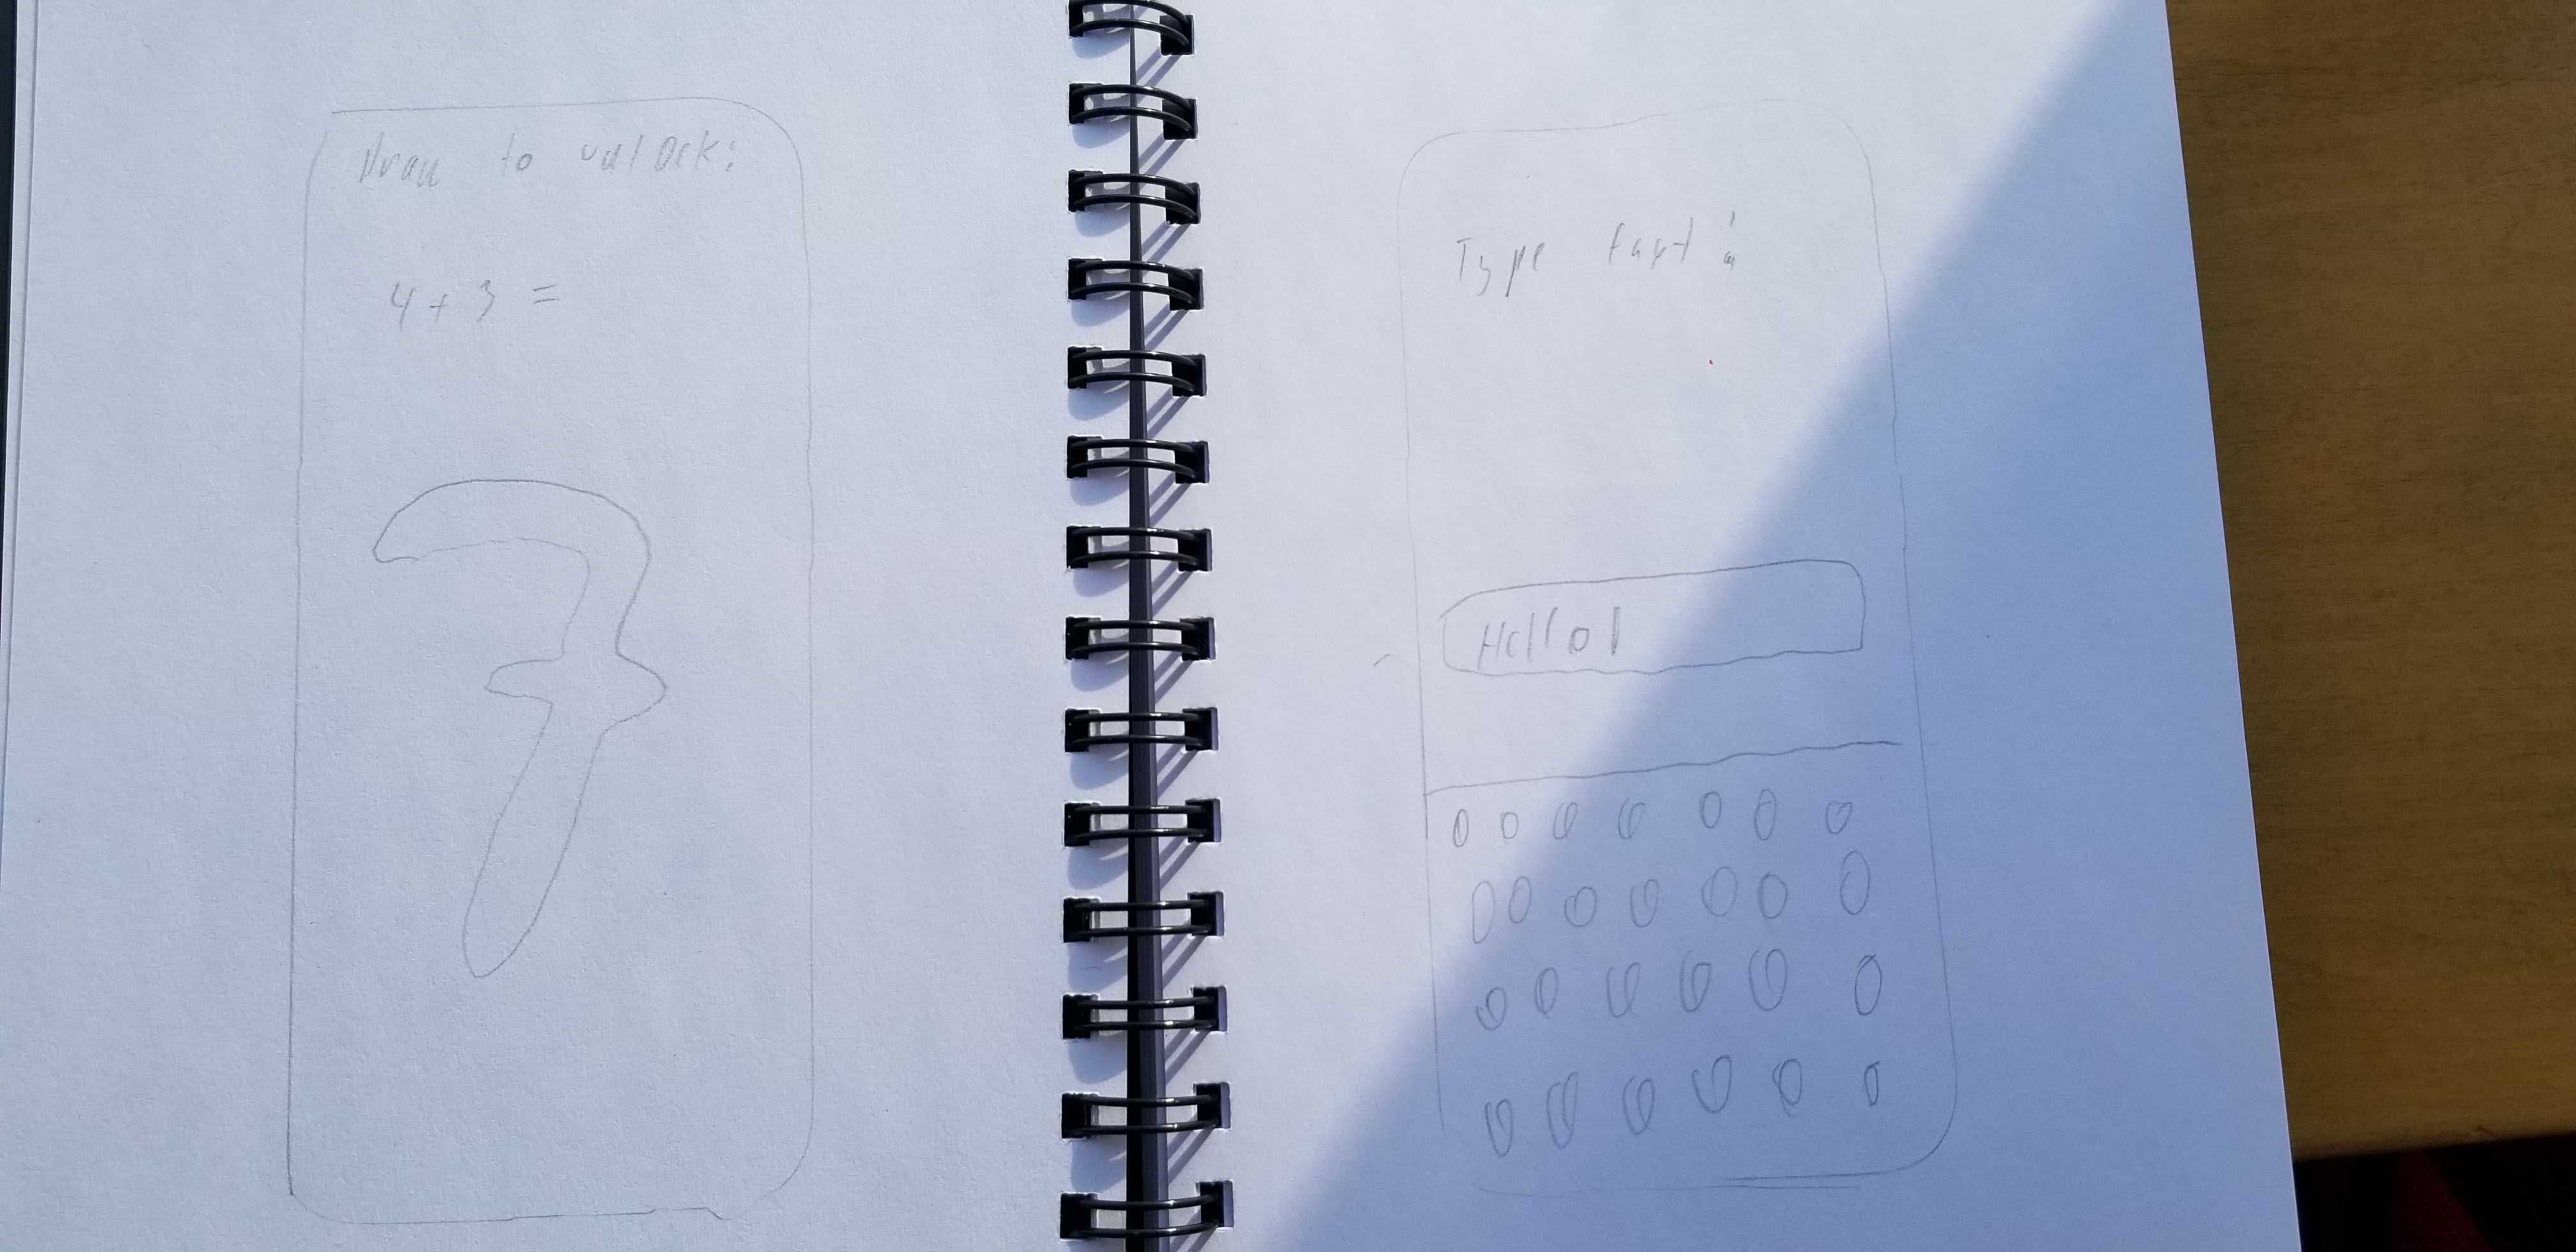 Draw to unlock:
4+3 =
7
Type fast:
Hello